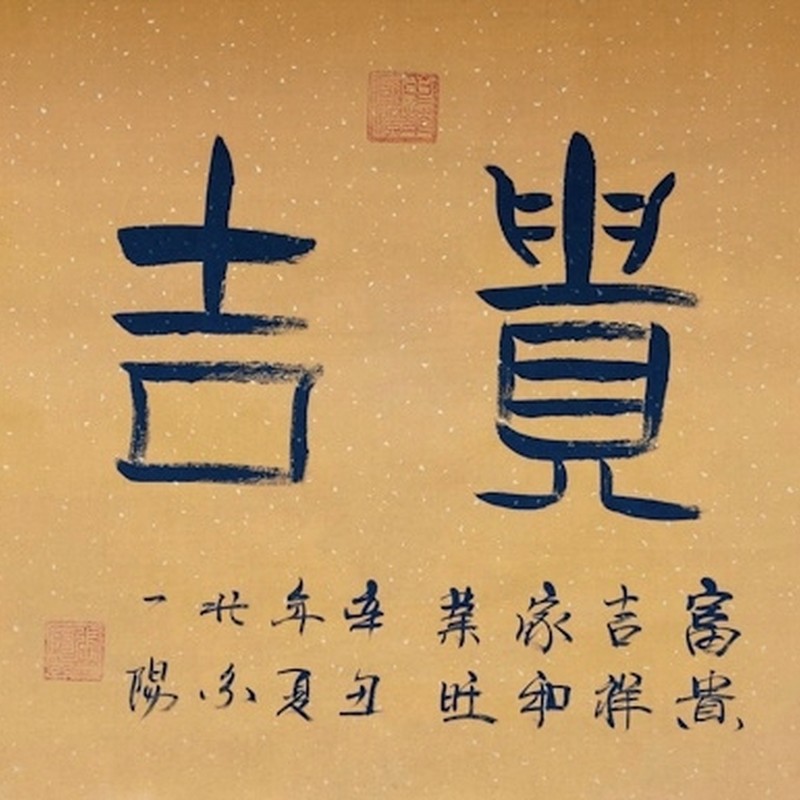 貴吉
富貴
吉祥
家和
業旺
辛丑
年夏
一陽